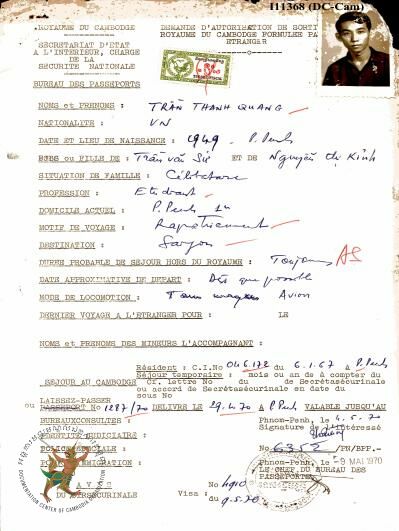 I11368 (DC-Cam)
ROYAUME DU CAMBODGE
DEMANDE D'AUTORISATION DE SORTI
ROYAUME DU CAMBODGE FORMULEE PA
ETRANGER
SECRETARIAT D'ETAT
A L'INTERIEUR, CHARGE
DE LA
SECURITE NATIONALE
BUREAU DES PASSEPORTS
NOMS et PRENOMS : TRẦN THANH QUANG
NATIONALITE : VN
DATE ET LIEU DE NAISSANCE : 1949 P. Penh
ou FILLE DE : Trần văn ET DE Nguyễn thị Kinh
SITUATION DE FAMILLE : Célibataire
PROFESSION : Etudiant
DOMICILE ACTUEL : P. Penh
MOTIF DE VOYAGE : Rapatriement
DESTINATION : Saigon
DUREE PROBABLE DE SEJOUR HORS DU ROYAUME : Toujours
DATE APPROXIMATIVE DE DEPART : Dès que possible
MODE DE LOCOMOTION : Avion
DERNIER VOYAGE A L'ETRANGER POUR : LE
NOMS et PRENOMS DES MINEURS L'ACCOMPAGNANT :
Résident : C.I.No 046.172 du 6.1.67 à P. Penh
Séjour temporaire : mois ou an à compter du
SEJOUR AU CAMBODGE Cf, lettre No du de Secrétasécurinale
ou accord de Secrétasécurinale en date du
sous No
LAISSEZ-PASSER
ou PASSEPORT No 1287/70 DELIVRE LE 29.4.70 A P. Penh VALABLE JUSQU'AU
BUREAUX CONSULTES : Phnom-Penh, le 4.5.70
IDENTITE JUDICIAIRE : Signature de l'intéressé
POLICE
No 6352 /PN/BPP.-
IMMIGRATION Phnom-Penh, le - 9 MAI 1970
AVIS LE CHEF DU BUREAU DES
No 4910 PASSEPORTS
DU SECURINALE Visa :
du 9.5.70
DOCUMENTATION CENTER OF CAMBODIA